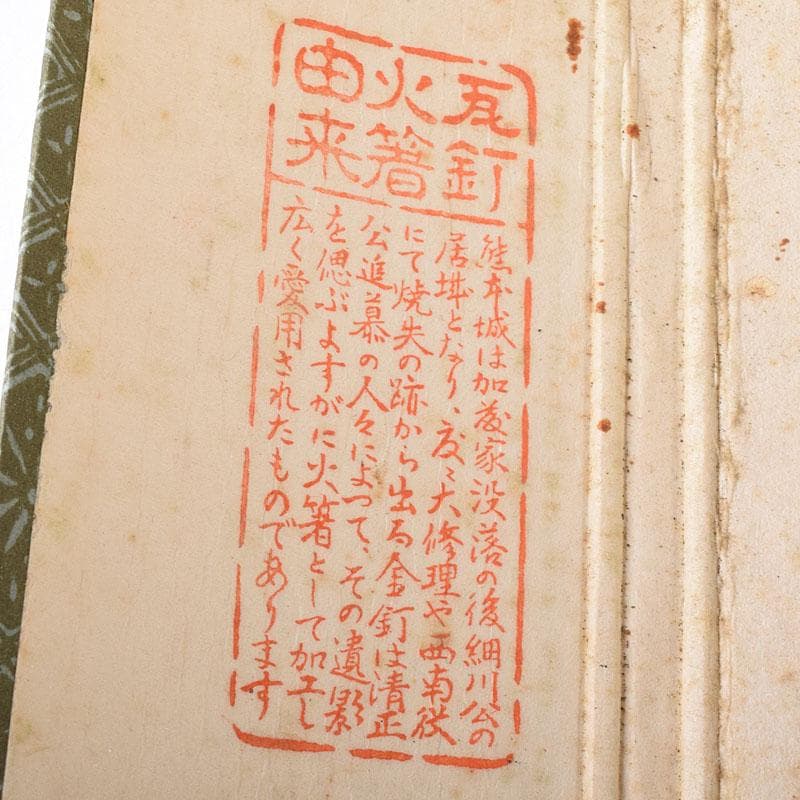 瓦釘
火箸
由来
熊本城は加藤家没落の後細川公の
居城となり、度々大修理や西南役
にて焼失の跡から出る金釘は清正
公追慕の人々によつて、その遺影
を偲ぶよすがに火箸として加工し
広く愛用されたものであります